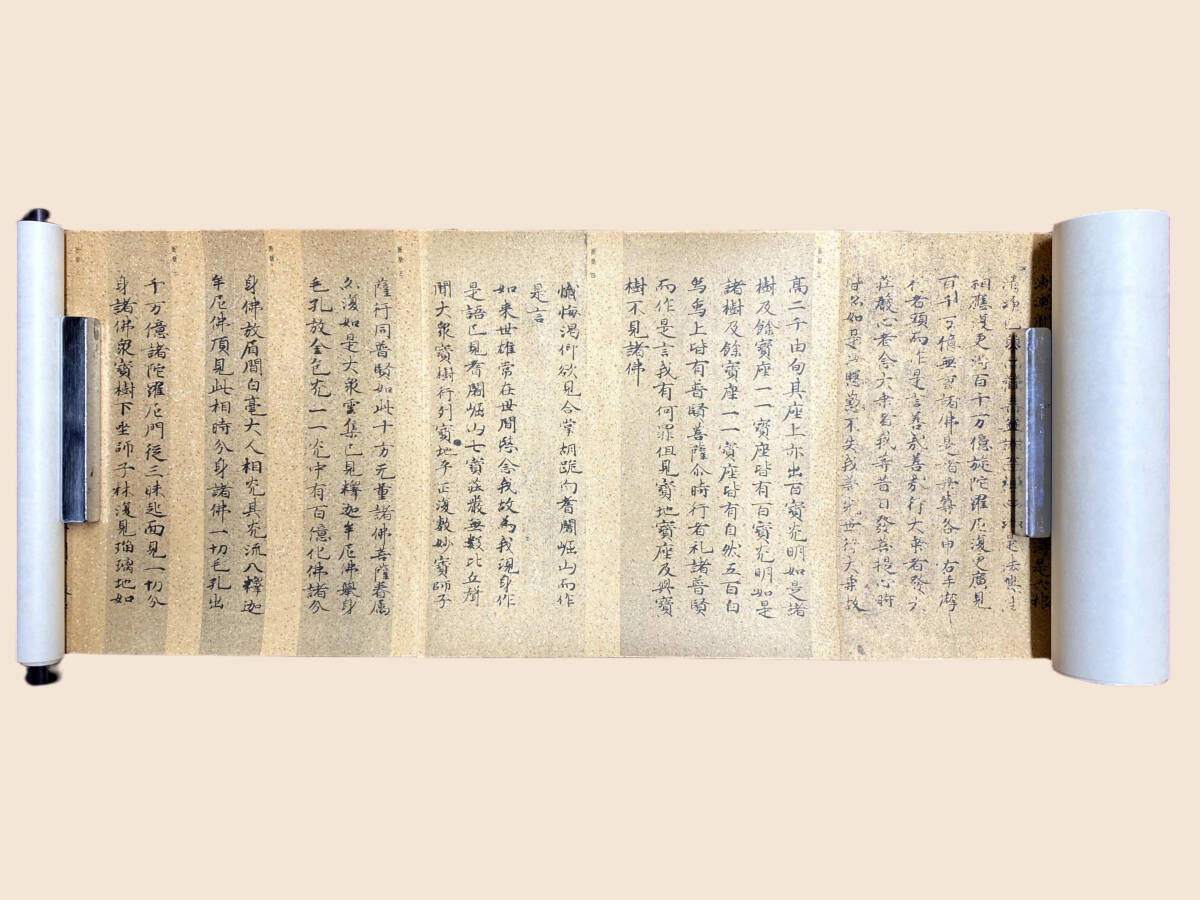 相應復更得百千万億旋陀羅尼復更廣見
百千万億無量諸佛是諸世尊各申右手摩
行者頭而作是言善哉善哉行大乗者發大
荘嚴心者念大乗者我等昔日發菩提心時
如是慇懃不失我等先世行大乗故
高二千由旬其座上亦出百寳光明如是諸
樹及餘寳座一一寳座皆有百寳光明如是
諸樹及餘寳座一一寳座皆有自然五百白
象象上皆有普賢菩薩尒時行者礼諸普賢
而作是言我有何罪但見寳地寳座及與寳
樹不見諸佛
懺悔渇仰欲見合掌胡跪向耆闍崛山而作
是言
如来世雄常在世間愍念我故為我現身作
是語已見耆闍崛山七寳荘嚴無數比丘聲
聞大衆寳樹行列寳地平正復敷妙寳師子
薩行同普賢如此十方无量諸佛菩薩眷属
久復如是大衆雲集已見釋迦牟尼佛擧身
毛孔放金色光一一光中有百億化佛諸分
身佛放眉間白毫大人相光其光流入釋迦
牟尼佛頂見此相時分身諸佛一切毛孔出
千万億諸陀羅尼門従三昧起面見一切分
身諸佛衆寳樹下坐師子床復見瑠璃地如